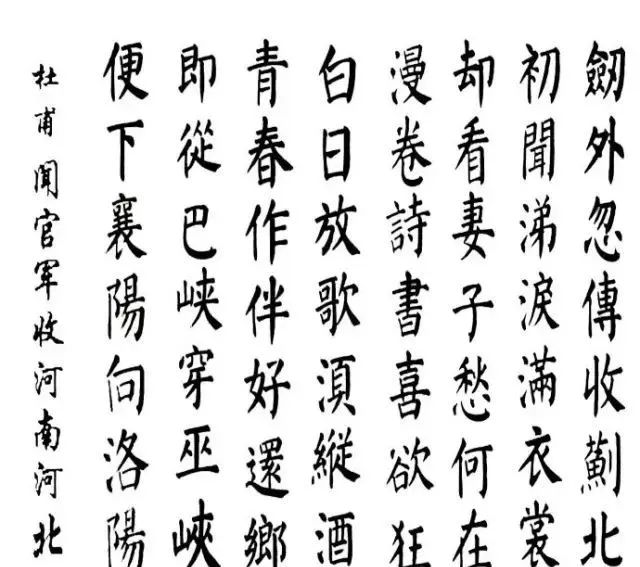 劒外忽傳收薊北
初聞涕淚滿衣裳
却看妻子愁何在
漫卷詩書喜欲狂
白日放歌湏縱酒
青春作伴好還鄉
即從巴峽穿巫峽
便下襄陽向洛陽
杜甫聞官軍收河南河北